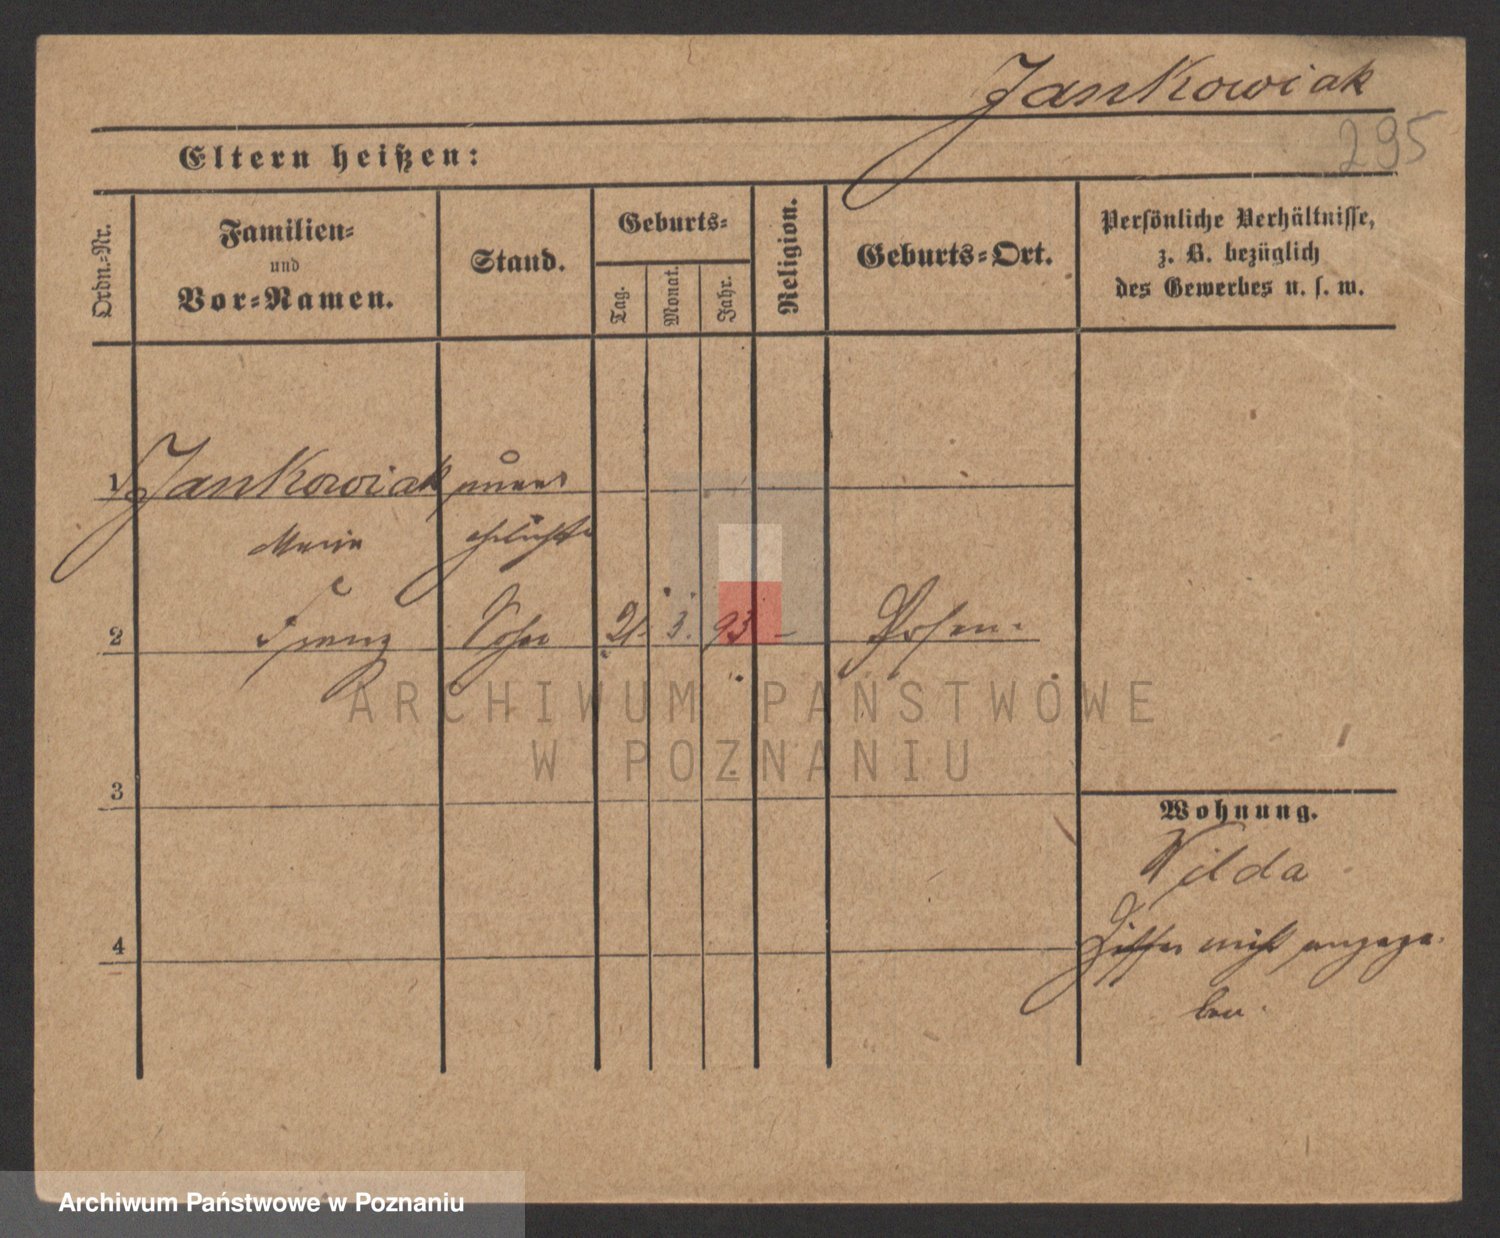 Jankowiak
295
Eltern heißen:
Ordn.-Nr.
Familien-
und
Vor-Namen.
Stand.
Geburts-
Tag.
Monat.
Jahr.
Religion.
Geburts-Ort.
Persönliche Verhältnisse,
z. B. bezüglich
des Gewerbes u. s. w.
1 Jankowiak unver
Marie ehelichte
2 Franz Sohn 21. 3. 93 – Posen.
ARCHIWUM PAŃSTWOWE
W POZNANIU
3
Wohnung.
Wilda
4 Ziffer nicht angege-
ben.
Archiwum Państwowe w Poznaniu